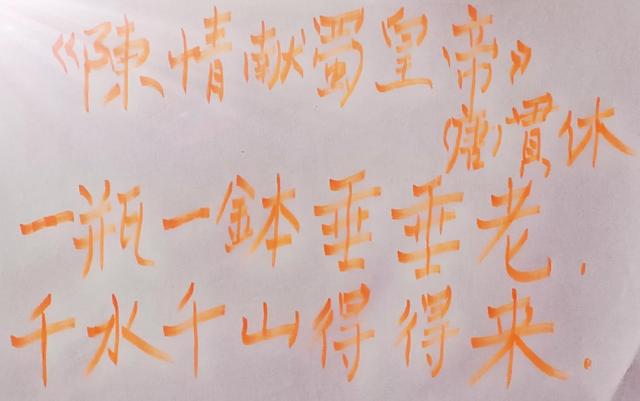 《陳情献蜀皇帝》
(唐)貫休
一瓶一鉢垂垂老.
千水千山得得来.